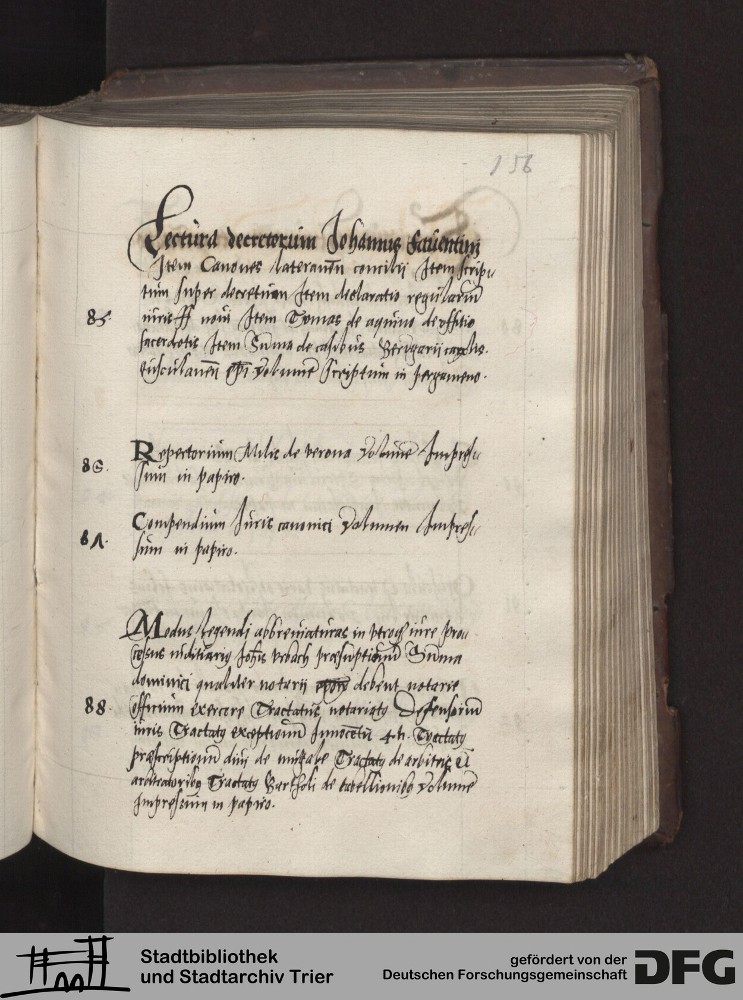 156
Lectura decretorum Johannis Fauentini
Item Canones lateranēn concilii Item scrip-
tum super decretum Item declaratio regularū
85.
iuris ff noui Item Tomas de aquino de offitio
sacerdotis Item Sūma de casibus Berengarii
tusculanen̄ ep̄i volumē scriptum in pergameno.
86.
Repertorium Milis de verona volumē Impres-
sum in papiro.
87.
Compendium Juris canonici volumen Impres-
sum in papiro.
Modus legendi abbreuiaturas in vtroqȝ iure pro-
cessus iuditiariꝰ Joh̄is vrbach præsūptionū Sūma
dominici qualiter notarii debent notarie
88.
officium exercere Tractatus notariatꝰ Defensoriū
iuris Tractatꝰ exceptionū Innocētii 4ti. Tractatꝰ
præscriptionū dini de muxale Tractatꝰ de arbitris &
arbitratoribꝰ Tractatꝰ Bartholi de tabellionibꝰ volumē
impressum in papiro.
Stadtbibliothek
und Stadtarchiv Trier
gefördert von der
Deutschen Forschungsgemeinschaft
DFG